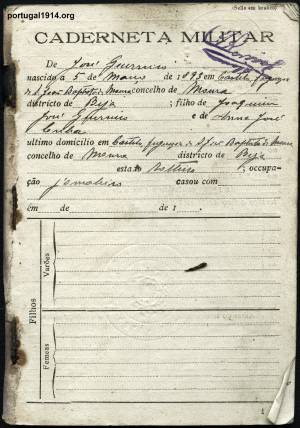 portugal1914.org
(Selo em branco)
CADERNETA MILITAR
De José
nascido a 5 de Março de 1895 em
de S. João Baptista de Moura concelho de Moura
districto de Beja ; filho de Joaquim
José e de Anna José
ultimo domicilio em S. João Baptista de Moura
concelho de Moura districto de Beja
estado Solteiro ; occupa-
ção jornaleiro casou com
em de de 1 .
Filhos
Varões
Femeas
1